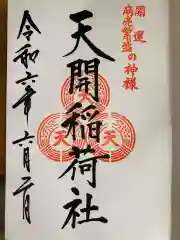 開運
商売繁盛の神様
天開稲荷社
天
天 天
令和六年六月二日